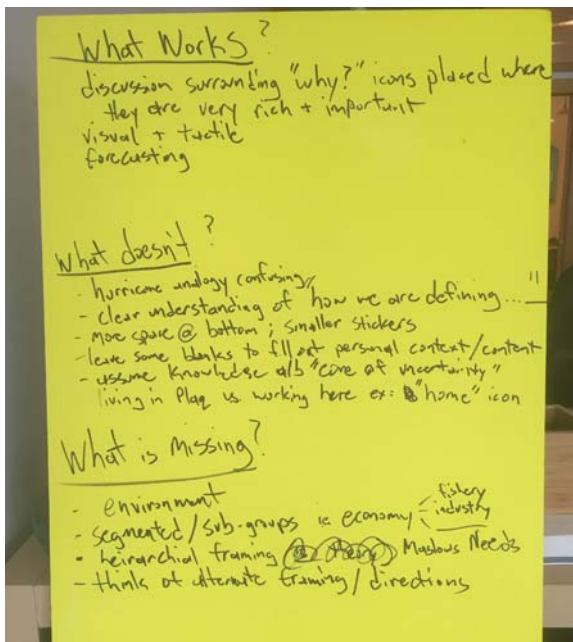 What Works?
discussion surrounding "why?" icons placed where
they are very rich + important
visual + tactile
forecasting
What doesn't?
- hurricane analogy confusing
- clear understanding of how we are defining...."__"
- more space @ bottom; smaller stickers
- leave some blanks to fill out personal context/content
- assume knowledge a/b "cone of uncertainty"
living in Plaq vs working here ex: "home" icon
What is missing?
- environment
- segmented/sub-groups ie economy - fishery
- industry
- heirarchial framing Maslows Needs
- think of alternate framing/directions